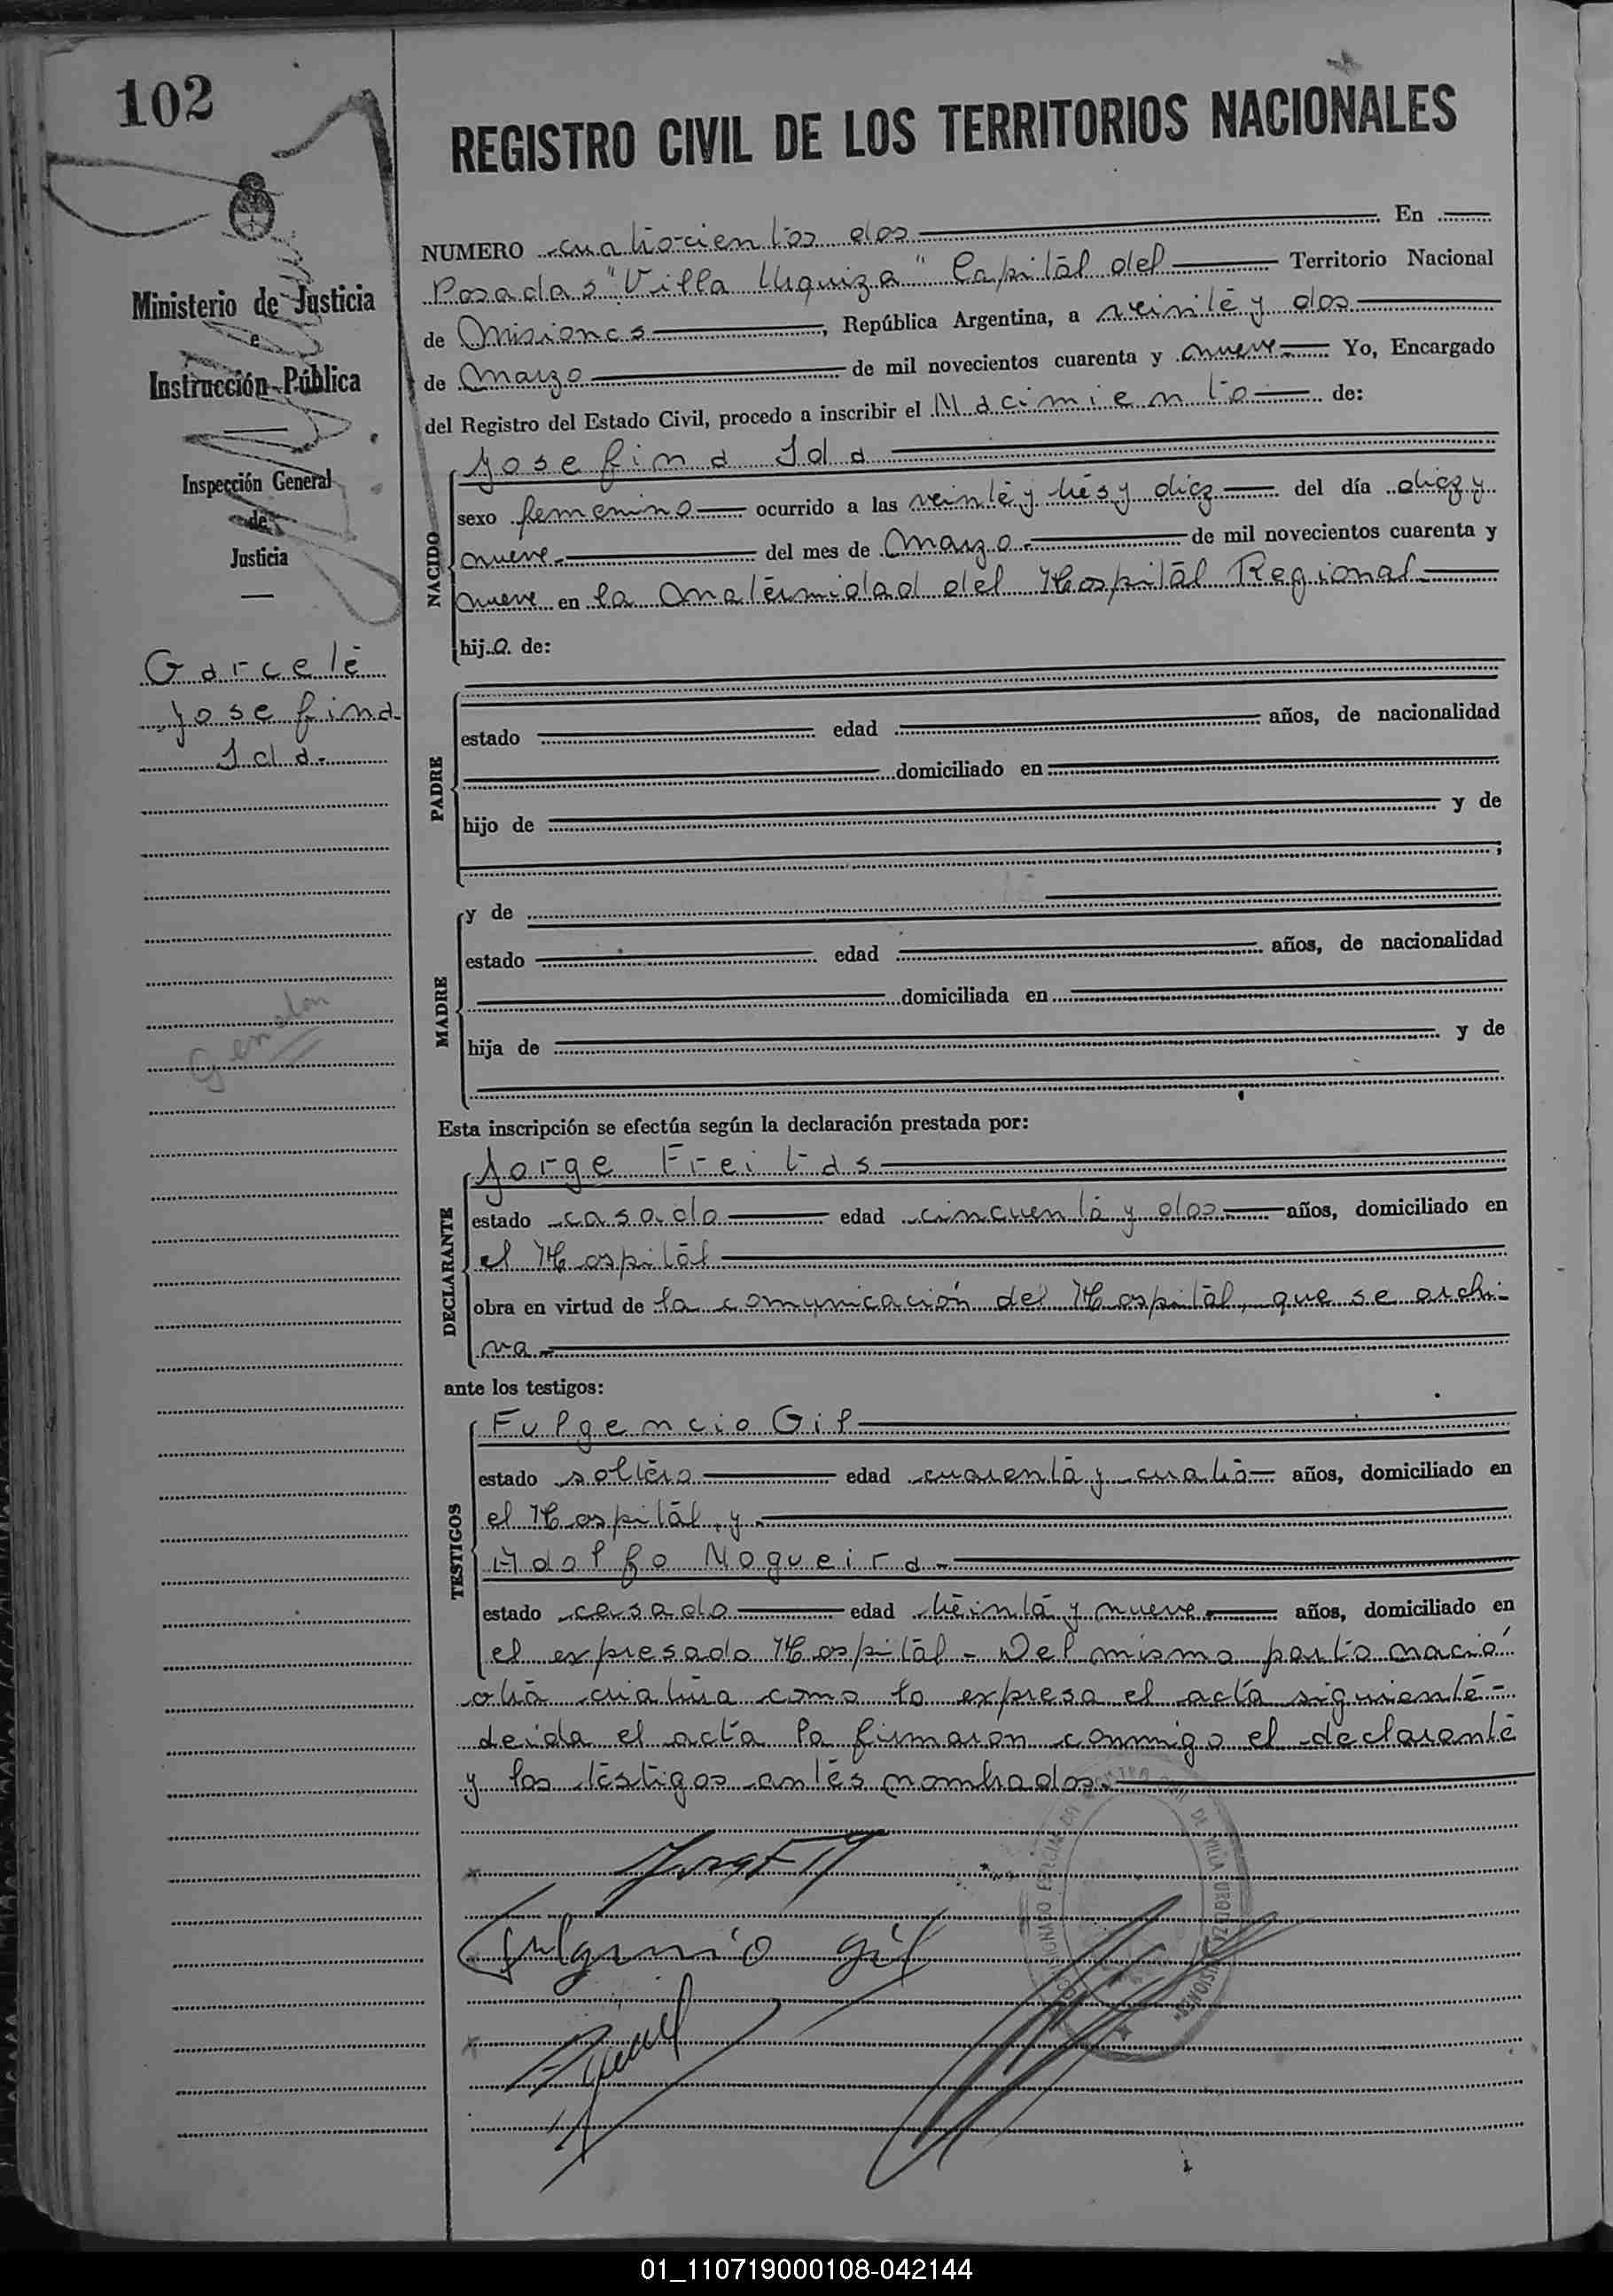 102
REGISTRO CIVIL DE LOS TERRITORIOS NACIONALES
Ministerio de Justicia
e
Instrucción Pública
Inspección General
de
Justicia
Garcete
Josefina
Ida.
Gemelar
NUMERO cuatrocientos dos En
Posadas "Villa Urquiza" Capital del Territorio Nacional
de Misiones, República Argentina, a veinte y dos
de Marzo de mil novecientos cuarenta y nueve. Yo, Encargado
del Registro del Estado Civil, procedo a inscribir el Nacimiento de:
NACIDO
Josefina Ida
sexo femenino ocurrido a las veinte y tres y diez del día diez y
nueve. del mes de Marzo. de mil novecientos cuarenta y
nueve en la Maternidad del Hospital Regional.
hija de:
PADRE
estado edad años, de nacionalidad
domiciliado en
hijo de y de
;
MADRE
y de
estado edad años, de nacionalidad
domiciliada en
hija de y de
Esta inscripción se efectúa según la declaración prestada por:
DECLARANTE
Jorge Freitas
estado casado edad cincuenta y dos. años, domiciliado en
el Hospital
obra en virtud de la comunicación del Hospital, que se archi-
va.
ante los testigos:
TESTIGOS
Fulgencio Gil
estado soltero edad cuarenta y cuatro años, domiciliado en
el Hospital, y.
Adolfo Nogueira.
estado casado edad treinta y nueve. años, domiciliado en
el expresado Hospital - Del mismo parto nació
otra criatura como lo expresa el acta siguiente -
Leida el acta la firmaron conmigo el declarante
y los testigos antes nombrados.
Fulgencio Gil
DE VILLA URQUIZA MISIONES
01_110719000108-042144